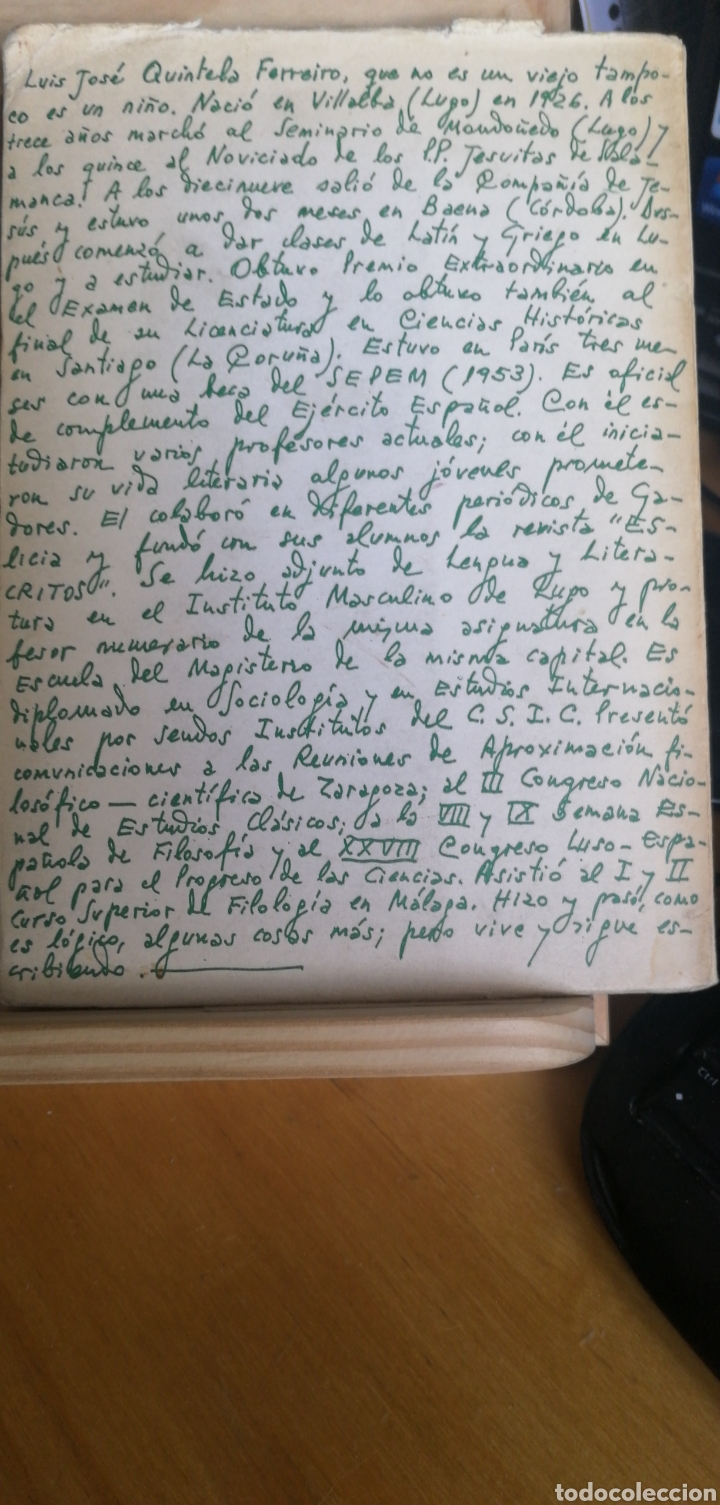 Luis José Quintela Ferreiro, que no es un viejo tampo-
co es un niño. Nació en Villalba (Lugo) en 1926. A los
trece años marchó al Seminario de Mondoñedo (Lugo) y
a los quince al Noviciado de los P.P. Jesuitas de Sala-
manca. A los diecinueve salió de la Compañía de Je-
sús y estuvo unos dos meses en Baena (Córdoba). Des-
pués comenzó a dar clases de Latín y Griego en Lu-
go y a estudiar. Obtuvo Premio Extraordinario en
el Examen de Estado y lo obtuvo también al
final de su Licenciatura en Ciencias Históricas
en Santiago (La Coruña). Estuvo en París tres me-
ses con una beca del SEPEM (1953). Es oficial
de complemento del Ejército Español. Con él es-
tudiaron varios profesores actuales; con él inicia-
ron su vida literaria algunos jóvenes promete-
dores. El colaboró en diferentes periódicos de Ga-
licia y fundó con sus alumnos la revista "ES-
CRITOS". Se hizo adjunto de Lengua y Litera-
tura en el Instituto Masculino de Lugo y pro-
fesor numerario de la misma asignatura en la
Escuela del Magisterio de la misma capital. Es
diplomado en Sociología y en Estudios Internacio-
nales por sendos Institutos del C.S.I.C. Presentó
comunicaciones a las Reuniones de Aproximación fi-
losófico-científica de Zaragoza; al III Congreso Nacio-
nal de Estudios Clásicos; a la VIII y IX Semana Es-
pañola de Filosofía y al XXVIII Congreso Luso-Espa-
ñol para el Progreso de las Ciencias. Asistió al I y II
Curso Superior de Filología en Málaga. Hizo y pasó, como
es lógico, algunas cosas más; pero vive y sigue es-
cribiendo.
Ctrl
todocoleccion